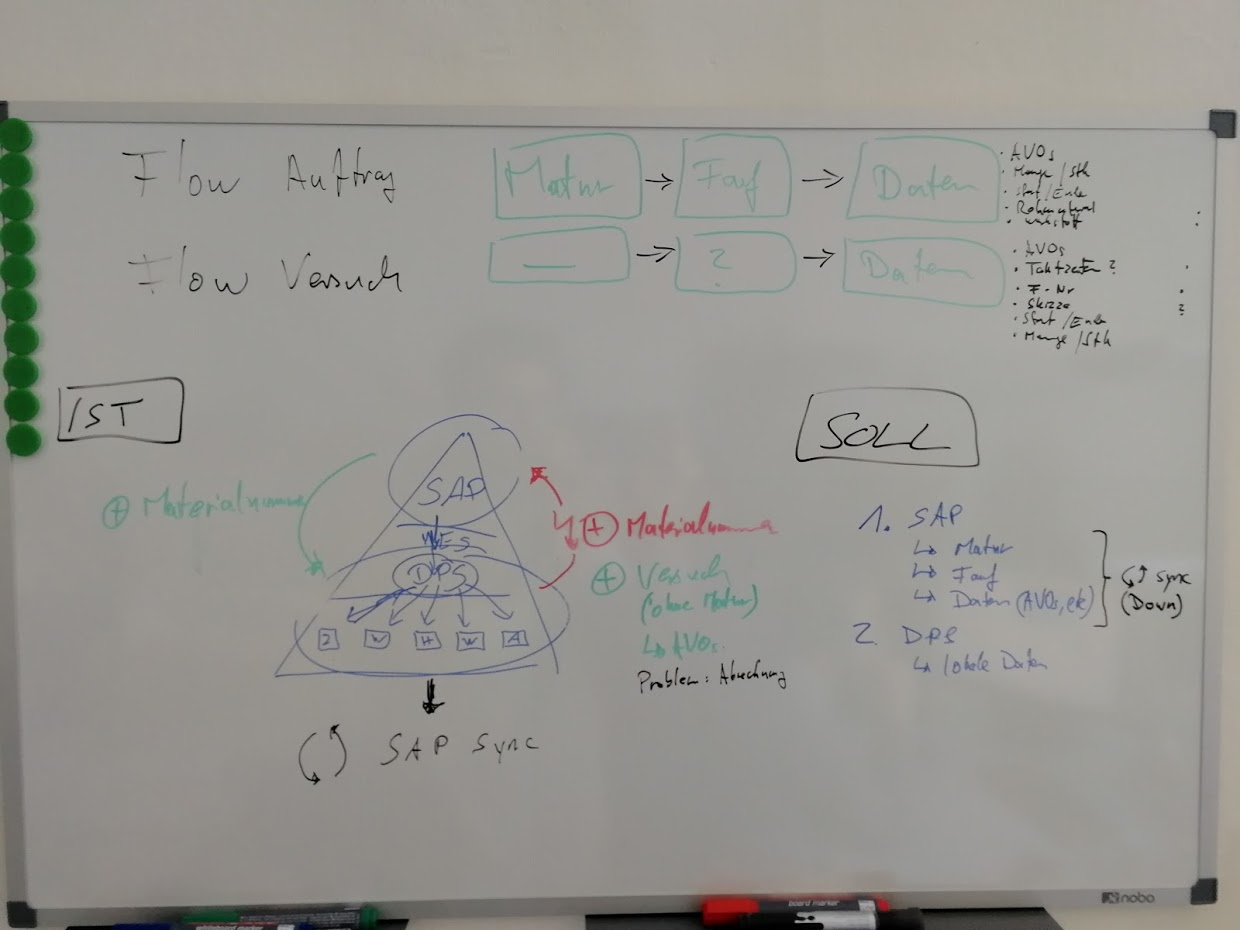 Flow Auftrag
Matnr → Fauf → Daten
· AVOs
· Menge / Stk
· Start / Ende
· Rohmaterial
· Werkstoff
Flow Versuch
— → ? → Daten
· AVOs
· Taktzeiten ?
· F-Nr
· Skizze
· Start / Ende
· Menge / Stk
?
IST
SOLL
SAP
MES
DPS
Z W H W A
+ Materialnummer
+ Materialnummer
+ Versuch
(ohne Matnr)
↳ AVOs
Problem: Abrechnung
SAP Sync
1. SAP
↳ Matnr
↳ Fauf
↳ Daten (AVOs, etc)
Sync
(Down)
2. DPS
↳ lokale Daten
nobo
board marker
whiteboard marker